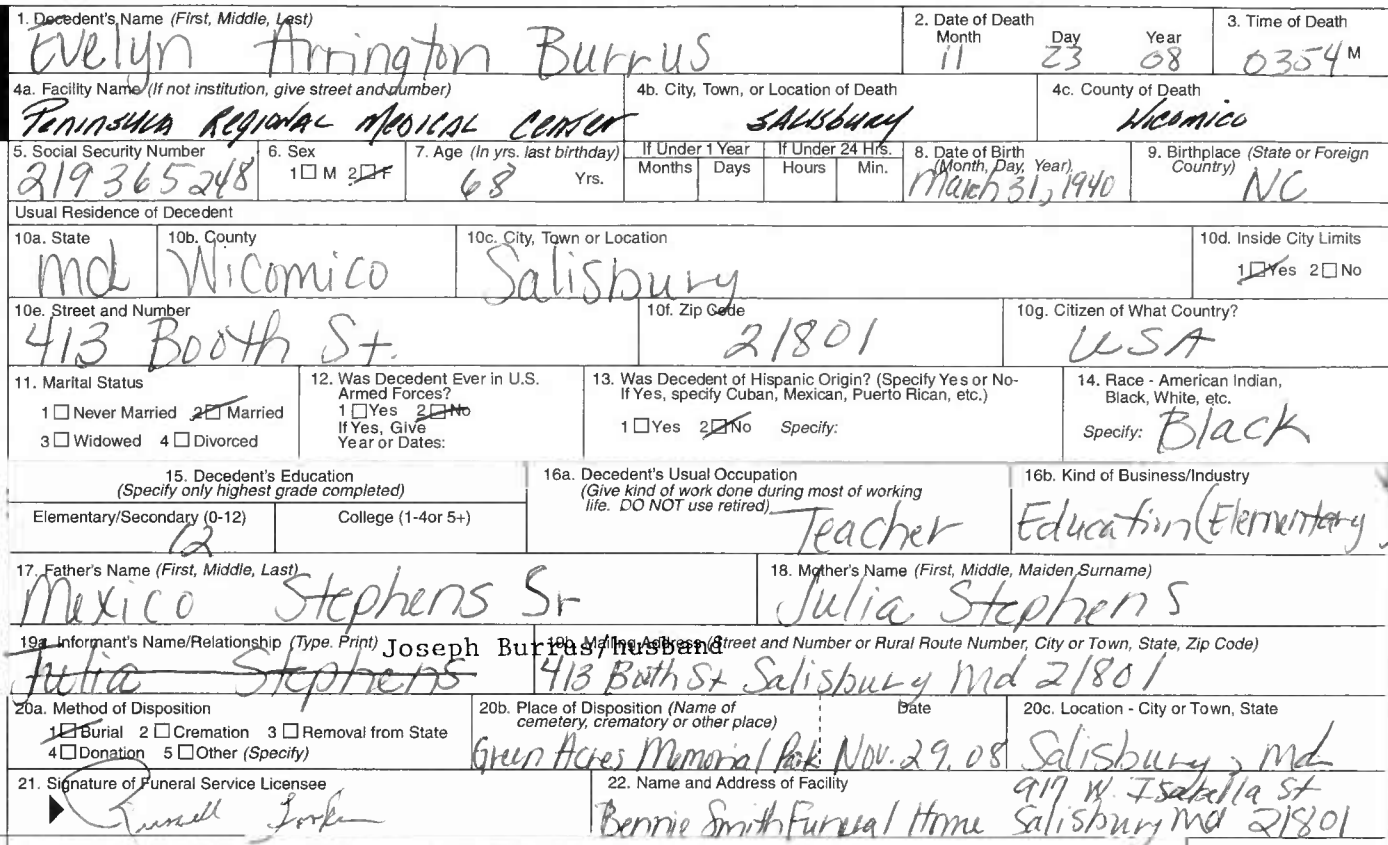 1. Decedent's Name (First, Middle, Last)
Evelyn Arrington Burrus
2. Date of Death
Month Day Year
11 23 08
3. Time of Death
0354 M
4a. Facility Name (If not institution, give street and number)
Peninsula Regional Medical Center
4b. City, Town, or Location of Death
Salisbury
4c. County of Death
Wicomico
5. Social Security Number
219365248
6. Sex
1 M 2 F
7. Age (In yrs. last birthday)
68 Yrs.
If Under 1 Year
Months Days
If Under 24 Hrs.
Hours Min.
8. Date of Birth
(Month, Day, Year)
March 31, 1940
9. Birthplace (State or Foreign
Country)
NC
Usual Residence of Decedent
10a. State
Md
10b. County
Wicomico
10c. City, Town or Location
Salisbury
10d. Inside City Limits
1 Yes 2 No
10e. Street and Number
413 Booth St.
10f. Zip Code
21801
10g. Citizen of What Country?
USA
11. Marital Status
1 Never Married 2 Married
3 Widowed 4 Divorced
12. Was Decedent Ever in U.S.
Armed Forces?
1 Yes 2 No
If Yes, Give
Year or Dates:
13. Was Decedent of Hispanic Origin? (Specify Yes or No-
If Yes, specify Cuban, Mexican, Puerto Rican, etc.)
1 Yes 2 No Specify:
14. Race - American Indian,
Black, White, etc.
Specify: Black
15. Decedent's Education
(Specify only highest grade completed)
Elementary/Secondary (0-12)
12
College (1-4or 5+)
16a. Decedent's Usual Occupation
(Give kind of work done during most of working
life. DO NOT use retired)
Teacher
16b. Kind of Business/Industry
Education (Elementary)
17. Father's Name (First, Middle, Last)
Mexico Stephens Sr
18. Mother's Name (First, Middle, Maiden Surname)
Julia Stephens
19a. Informant's Name/Relationship (Type. Print) Joseph Burrus/husband
Julia Stephens
19b. Mailing Address (Street and Number or Rural Route Number, City or Town, State, Zip Code)
413 Booth St Salisbury Md 21801
20a. Method of Disposition
1 Burial 2 Cremation 3 Removal from State
4 Donation 5 Other (Specify)
20b. Place of Disposition (Name of
cemetery, crematory or other place)
Green Acres Memorial Park
Date
Nov. 29, 08
20c. Location - City or Town, State
Salisbury, Md
21. Signature of Funeral Service Licensee
Russell
22. Name and Address of Facility
917 W. Isabella St
Bennie Smith Funeral Home Salisbury Md 21801